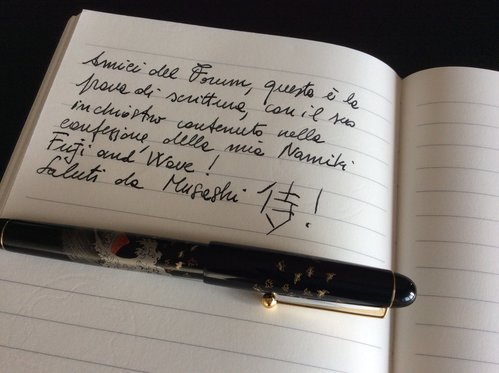 Amici del Forum, questa è la
prova di scrittura, con il suo
inchiostro contenuto nella
confezione della mia Namiki
Fuji and Wave!
Saluti da Musashi 侍!